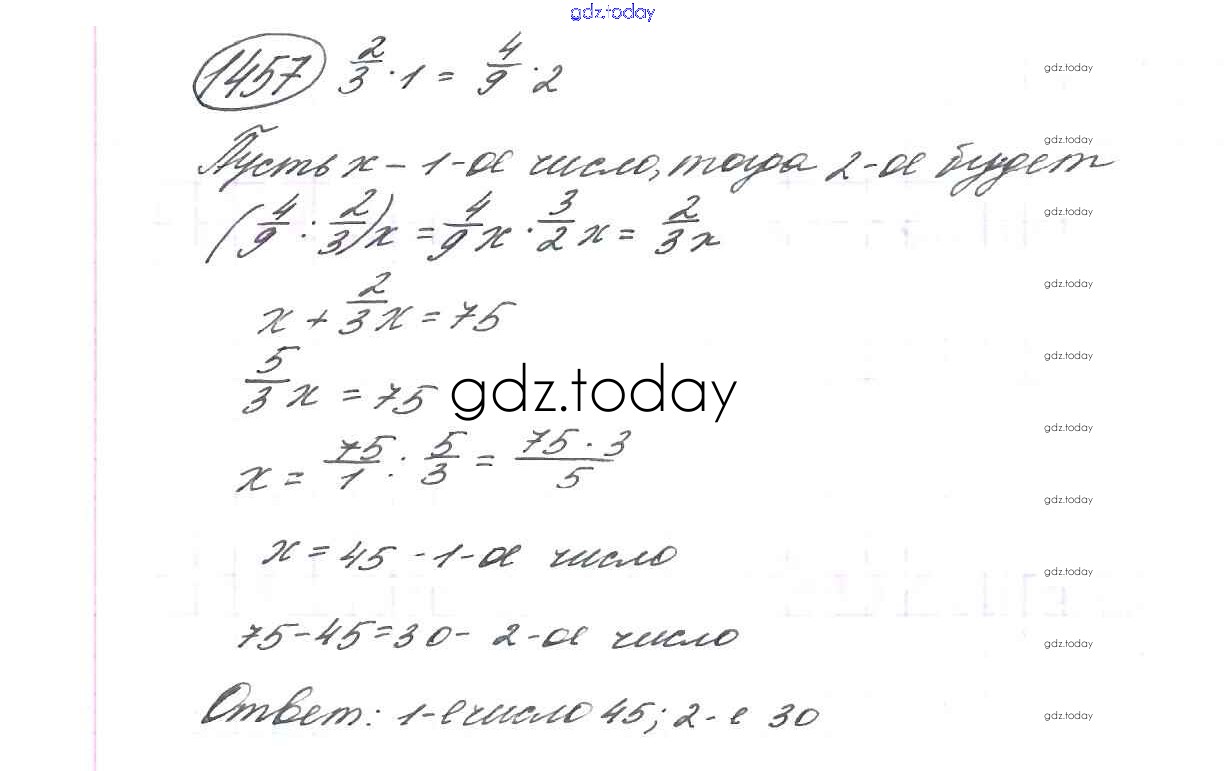 gdz.today
1457 2/3 · 1 = 4/9 · 2
gdz.today
gdz.today
Пусть x – 1-ое число, тогда 2-ое будет
(4/9 : 2/3)x = 4/9 x · 3/2 x = 2/3 x
gdz.today
gdz.today
x + 2/3 x = 75
gdz.today
5/3 x = 75
gdz.today
gdz.today
x = 75/1 : 5/3 = 75 · 3/5
gdz.today
x = 45 - 1-ое число
gdz.today
75-45=30- 2-ое число
gdz.today
Ответ: 1-е число 45; 2-е 30
gdz.today